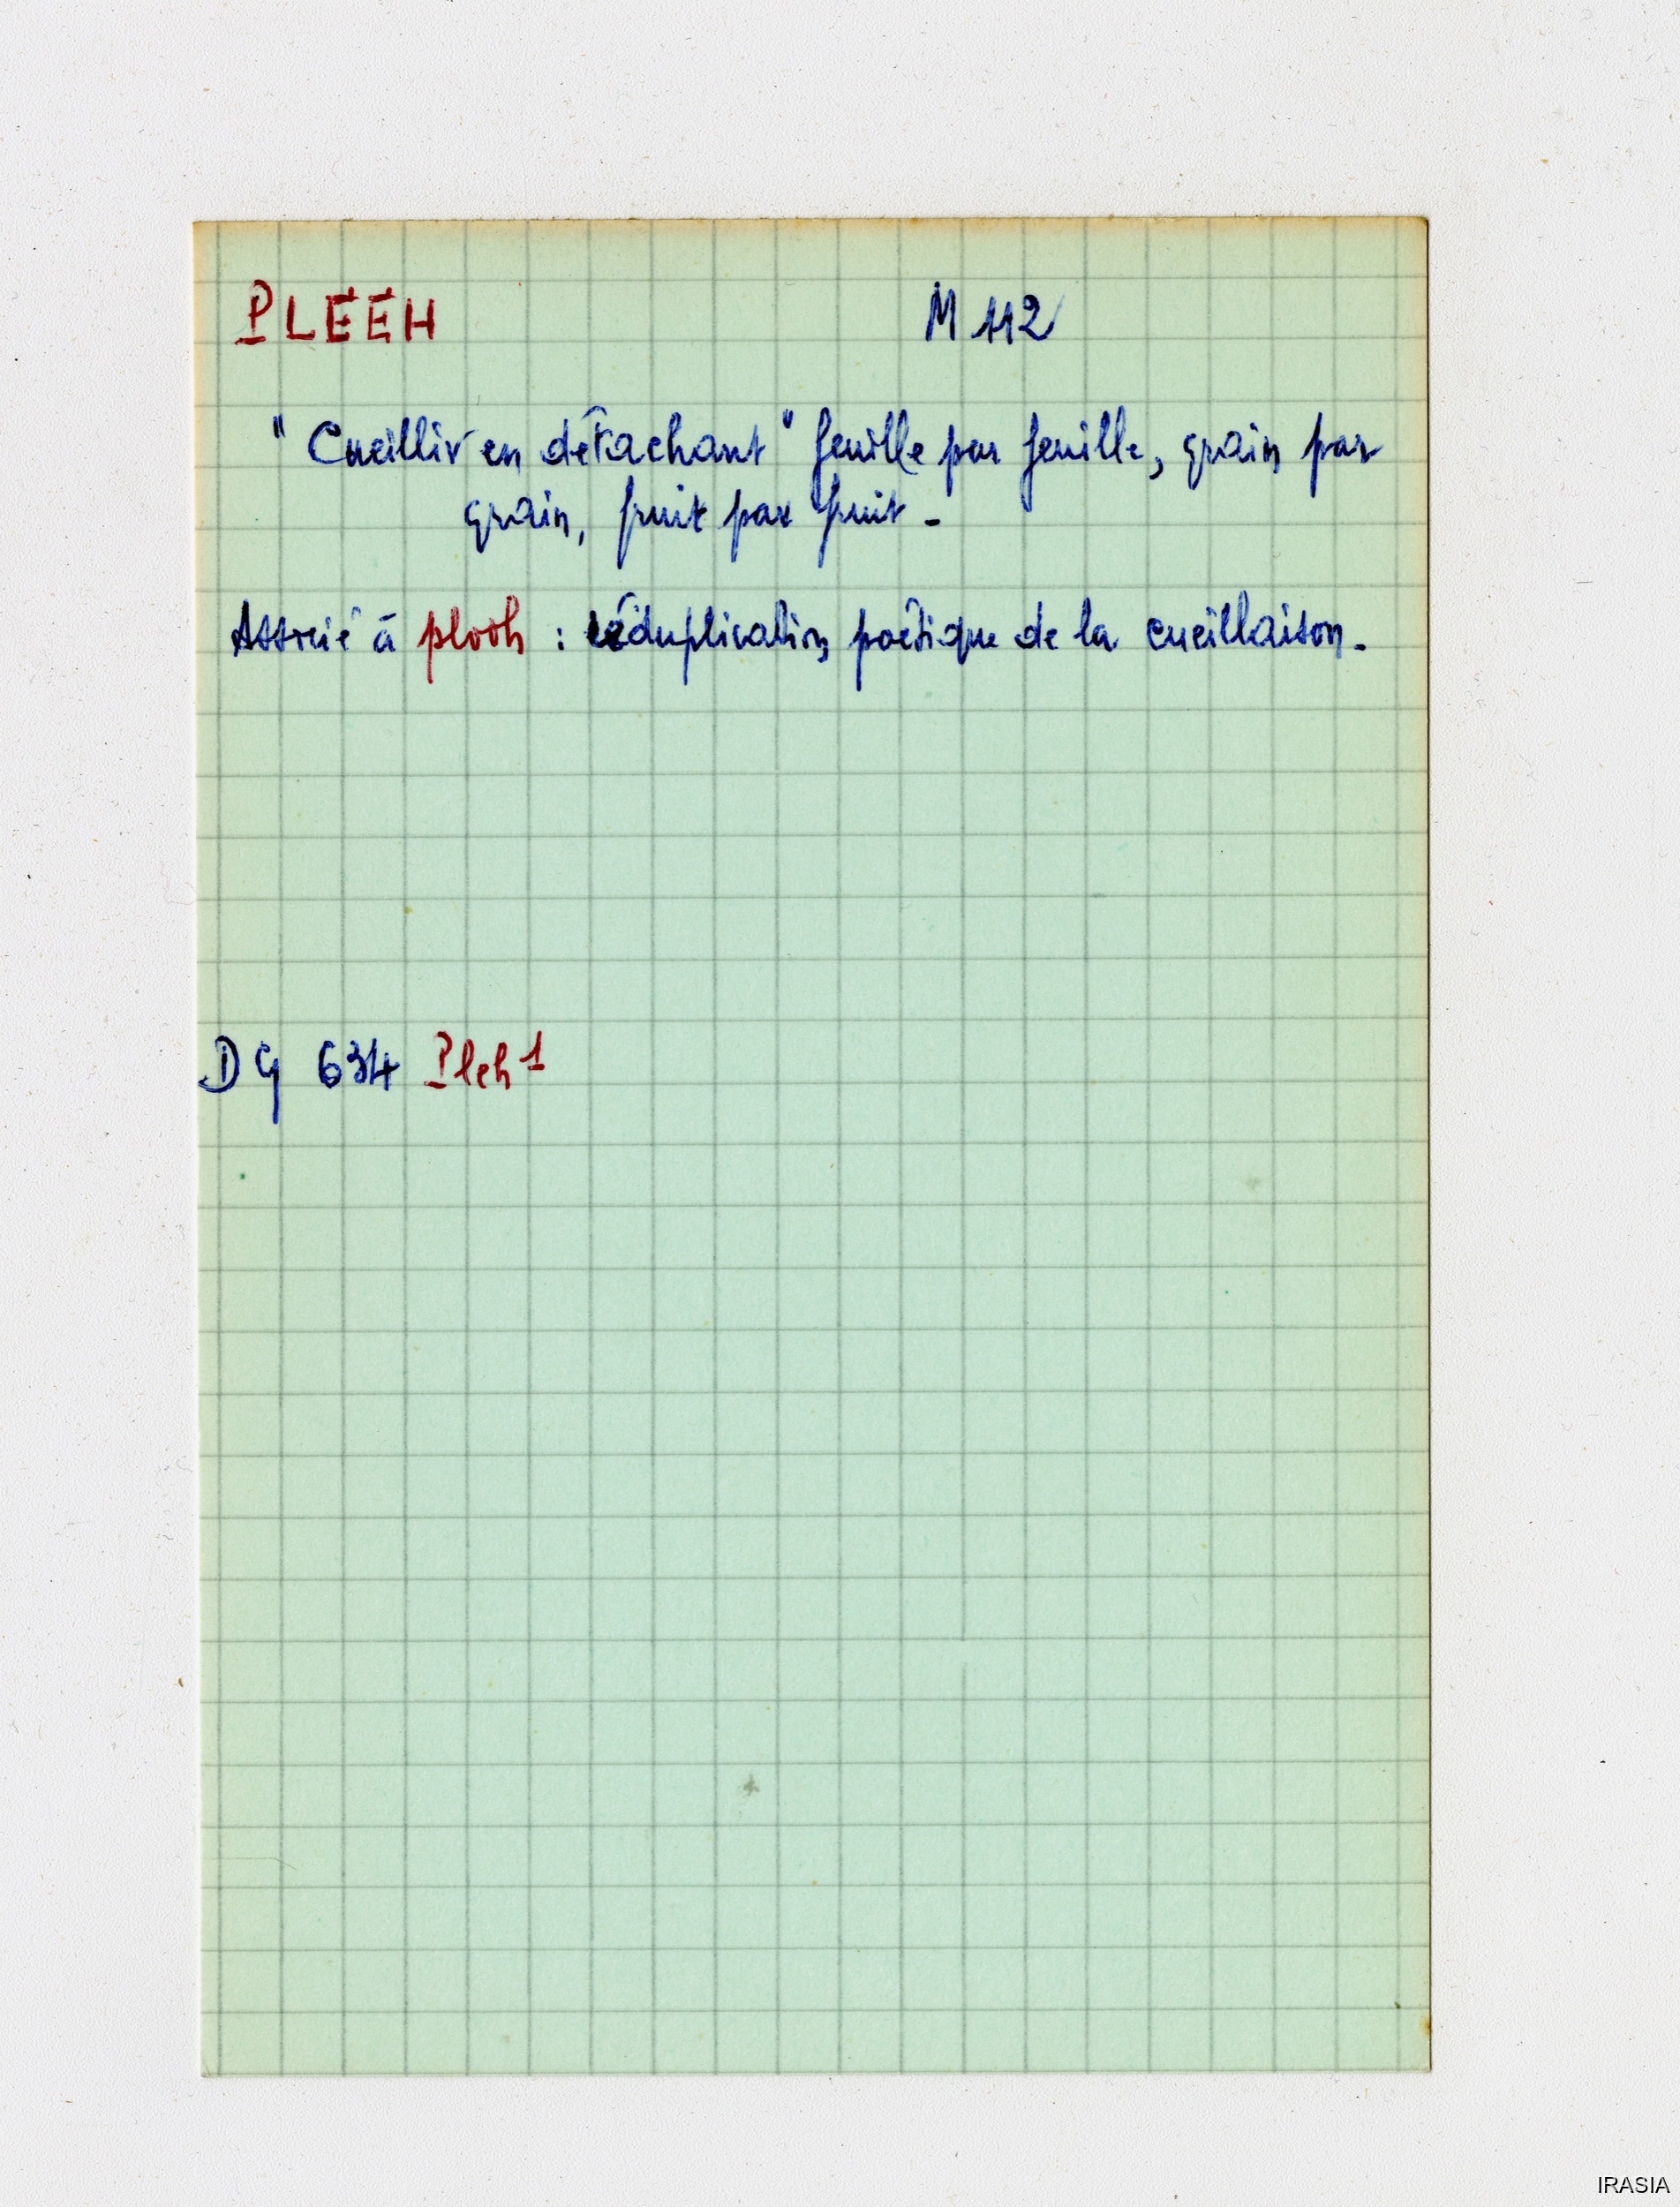 PLEEH M 112
" Cueillir en détachant " feuille par feuille, grain par
grain, fruit par fruit -
Associé à plooh : réduplication poétique de la cueillaison -
DG 634 Pleh 1
IRASIA